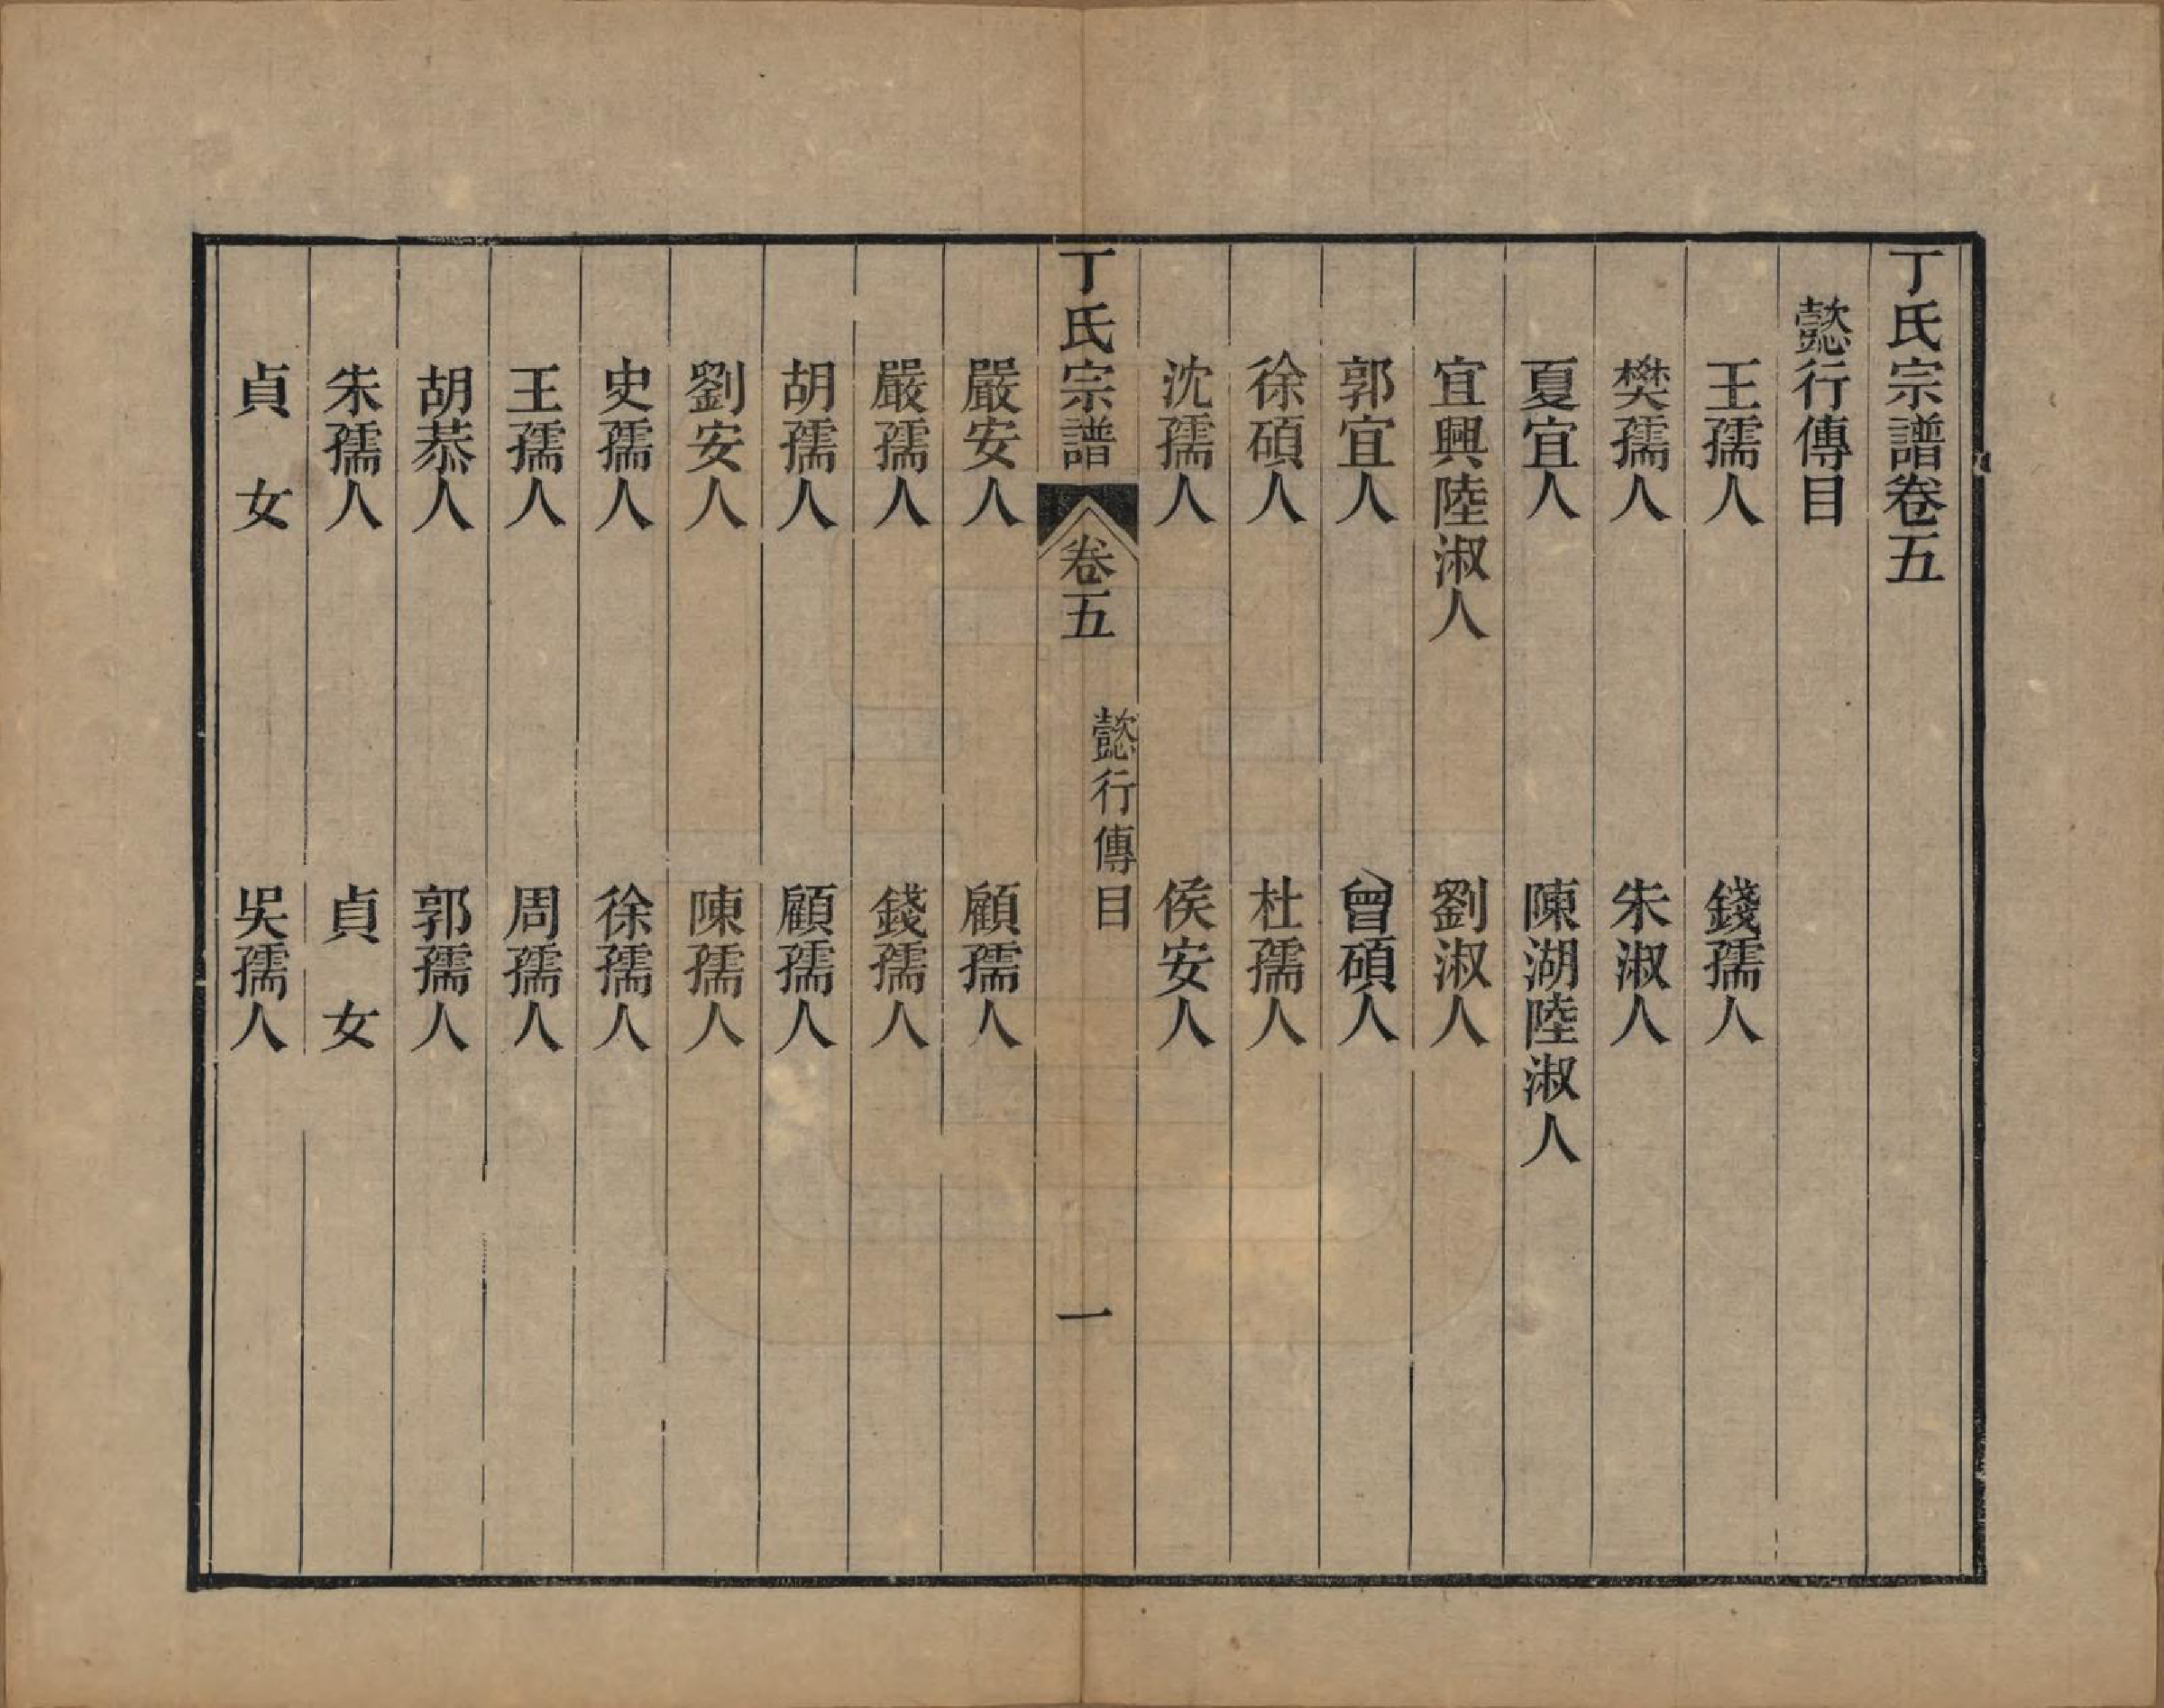 丁氏宗譜卷五
懿行傳目
王孺人　錢孺人
樊孺人　朱淑人
夏宜人　陳湖陸淑人
宜興陸淑人　劉淑人
郭宜人　曾碩人
徐碩人　杜孺人
沈孺人　侯安人
丁氏宗譜　卷五　懿行傳目　一
嚴安人　顧孺人
嚴孺人　錢孺人
胡孺人　顧孺人
劉安人　陳孺人
史孺人　徐孺人
王孺人　周孺人
胡恭人　郭孺人
朱孺人　貞女
貞女　吳孺人